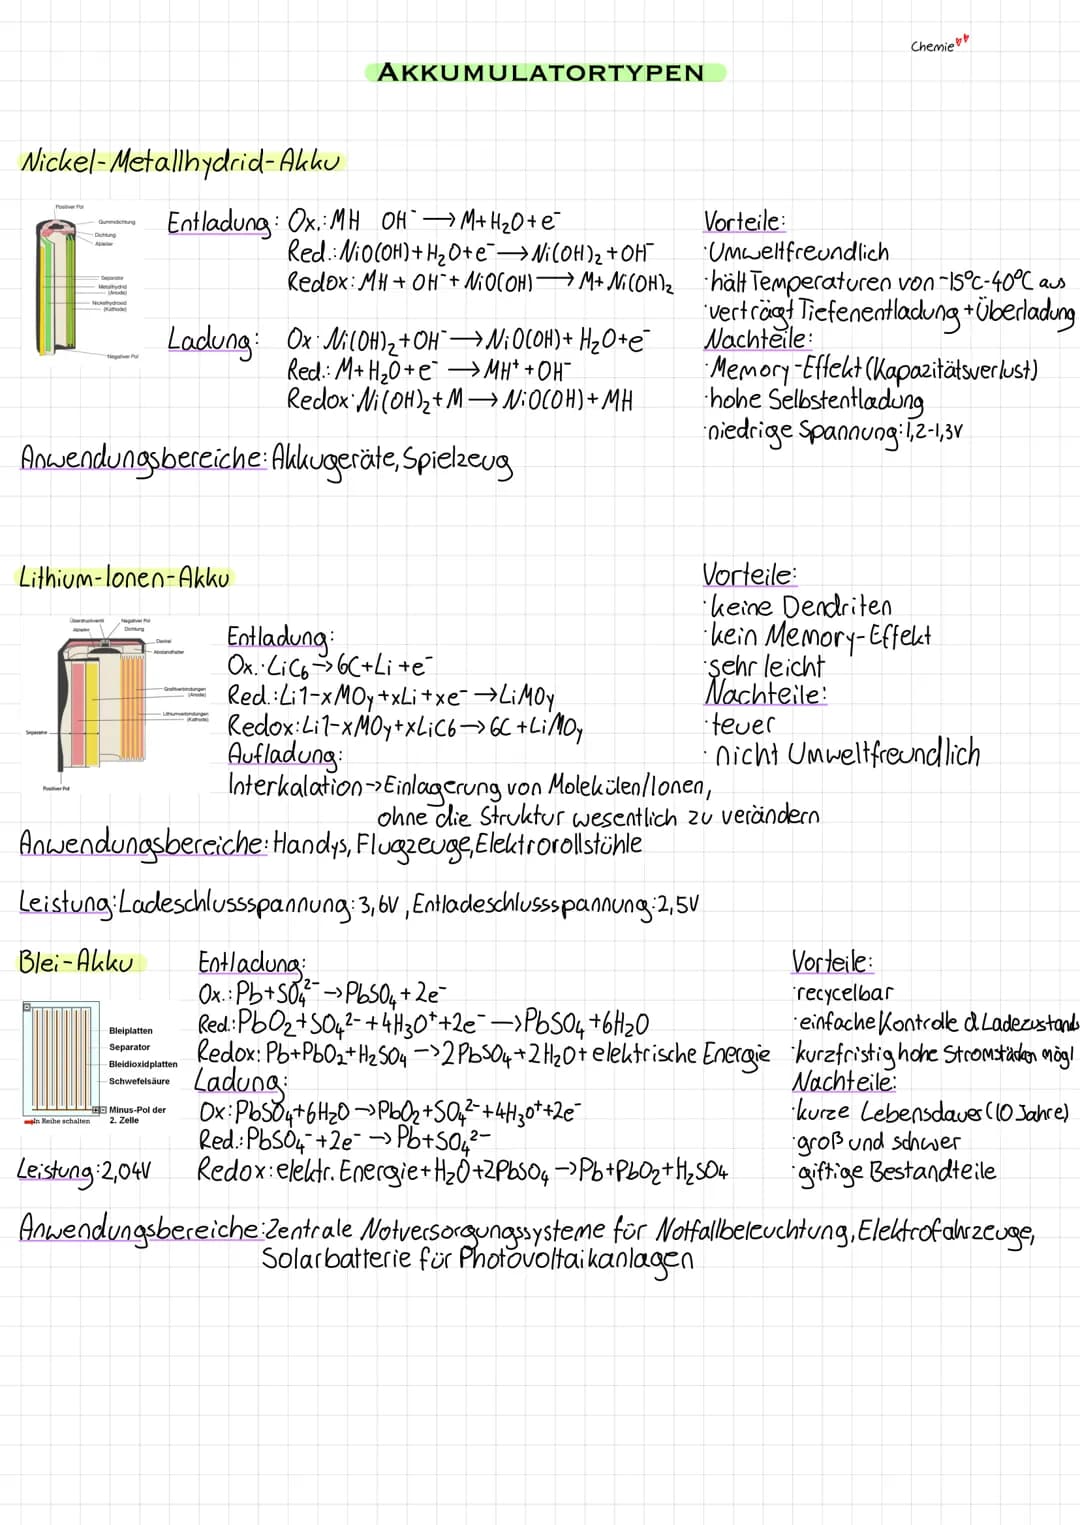 Chemie
AKKUMULATORTYPEN
Nickel-Metallhydrid-Akku
Positiver Pol
Gummidichtung
Dichtung
Ableiter
Separator
Metallhydrid
(Anode)
Nickelhydroxid
(Kathode)
Negativer Pol
Entladung: Ox.: MH OH⁻ → M + H₂O + e⁻
Red.: NiO(OH) + H₂O + e⁻ → Ni(OH)₂ + OH⁻
Redox: MH + OH⁻ + NiO(OH) → M + Ni(OH)₂
Ladung: Ox: Ni(OH)₂ + OH⁻ → NiO(OH) + H₂O + e⁻
Red.: M + H₂O + e⁻ → MH⁺ + OH⁻
Redox: Ni(OH)₂ + M → NiO(OH) + MH
Vorteile:
·Umweltfreundlich
·hält Temperaturen von -15°C-40°C aus
·verträgt Tiefenentladung + Überladung
Nachteile:
·Memory-Effekt (Kapazitätsverlust)
·hohe Selbstentladung
·niedrige Spannung: 1,2-1,3V
Anwendungsbereiche: Akkugeräte, Spielzeug
Lithium-Ionen-Akku
Überdruckventil
Negativer Pol
Ableiter
Dichtung
Deckel
Abstandhalter
Grafitverbindungen
(Anode)
Lithiumverbindungen
(Kathode)
Separator
Positiver Pol
Entladung:
Ox.: LiC₆ → 6C + Li + e⁻
Red.: Li1-xMOy + xLi + xe⁻ → LiMOy
Redox: Li1-xMOy + xLiC6 → 6C + LiMOy
Aufladung:
Interkalation → Einlagerung von Molekülen/Ionen,
ohne die Struktur wesentlich zu verändern
Vorteile:
·keine Dendriten
·kein Memory-Effekt
·sehr leicht
Nachteile:
·teuer
·nicht Umweltfreundlich
Anwendungsbereiche: Handys, Flugzeuge, Elektrorollstühle
Leistung: Ladeschlussspannung: 3,6V, Entladeschlussspannung: 2,5V
Blei-Akku
Bleiplatten
Separator
Bleidioxidplatten
Schwefelsäure
Minus-Pol der
2. Zelle
In Reihe schalten
Leistung: 2,04V
Entladung:
Ox.: Pb + SO₄²⁻ → PbSO₄ + 2e⁻
Red.: PbO₂ + SO₄²⁻ + 4H₃O⁺ + 2e⁻ → PbSO₄ + 6H₂O
Redox: Pb + PbO₂ + H₂SO₄ → 2PbSO₄ + 2H₂O + elektrische Energie
Ladung:
Ox: PbSO₄ + 6H₂O → PbO₂ + SO₄²⁻ + 4H₃O⁺ + 2e⁻
Red.: PbSO₄⁻ + 2e⁻ → Pb + SO₄²⁻
Redox: elektr. Energie + H₂O + 2PbSO₄ → Pb + PbO₂ + H₂SO₄
Vorteile:
·recycelbar
·einfache Kontrolle d Ladezustands
·kurzfristig hohe Stromstärken mögl
Nachteile:
·kurze Lebensdauer (10 Jahre)
·groß und schwer
·giftige Bestandteile
Anwendungsbereiche: Zentrale Notversorgungssysteme für Notfallbeleuchtung, Elektrofahrzeuge,
Solarbatterie für Photovoltaikanlagen